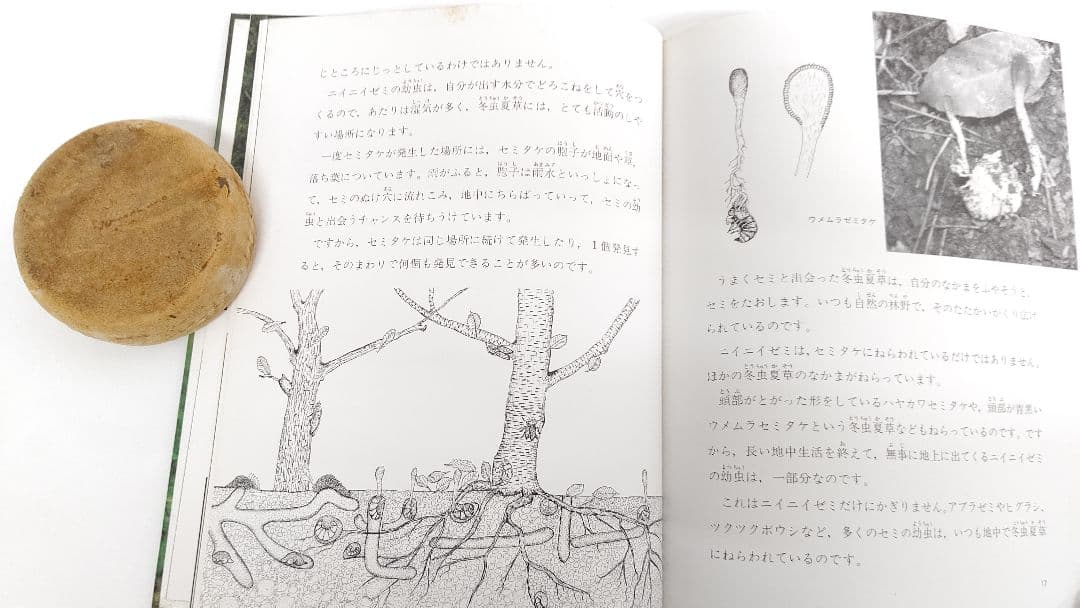 じところにじっとしているわけではありません。
ニイニイゼミの幼虫は、自分が出す水分でどろこねをして穴をつ
くるので、あたりは湿気が多く、冬虫夏草には、とても活動のしや
すい場所になります。
一度セミタケが発生した場所には、セミタケの胞子が地面や草、
落ち葉についています。雨がふると、胞子は雨水といっしょになっ
て、セミのぬけ穴に流れこみ、地中にちらばっていって、セミの幼
虫と出会うチャンスを待ちうけています。
ですから、セミタケは同じ場所に続けて発生したり、1個発見す
ると、そのまわりで何個も発見できることが多いのです。
ウメムラゼミタケ
うまくセミと出会った冬虫夏草は、自分のなかまをふやそうと、
セミをたおします。いつも自然の林野で、そのたたかいがくり広げ
られているのです。
ニイニイゼミは、セミタケにねらわれているだけではありません。
ほかの冬虫夏草のなかまがねらっています。
頭部がとがった形をしているハヤカワセミタケや、頭部が青黒い
ウメムラセミタケという冬虫夏草などもねらっているのです。です
から、長い地中生活を終えて、無事に地上に出てくるニイニイゼミ
の幼虫は、一部分なのです。
これはニイニイゼミだけにかぎりません。アブラゼミやヒグラシ、
ツクツクボウシなど、多くのセミの幼虫は、いつも地中で冬虫夏草
にねらわれているのです。
17